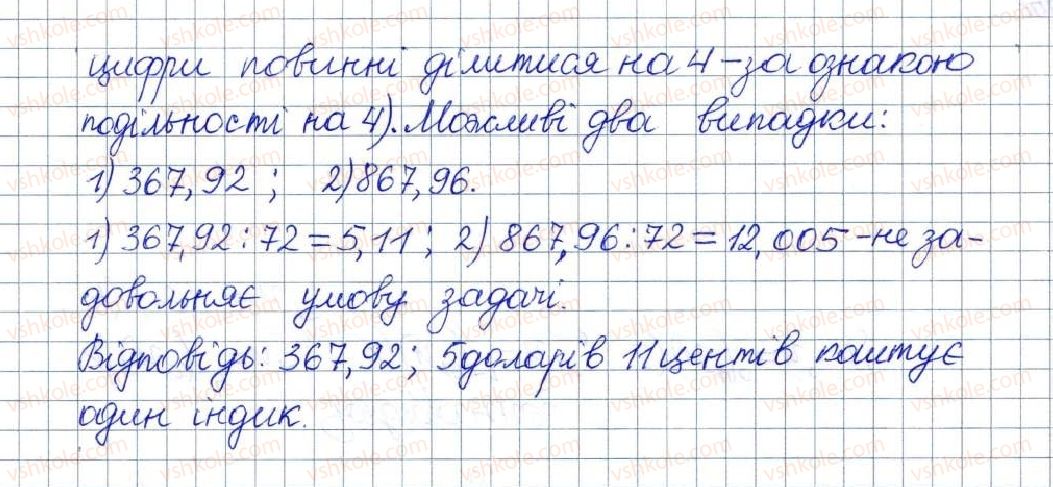 цифри повинні ділитися на 4 – за ознакою
подільності на 4). Можливі два випадки:
1) 367,92 ; 2) 867,96.
1) 367,92 : 72 = 5,11 ; 2) 867,96 : 72 = 12,005 – не за-
довольняє умову задачі.
Відповідь: 367,92 ; 5 доларів 11 центів коштує
один індик.